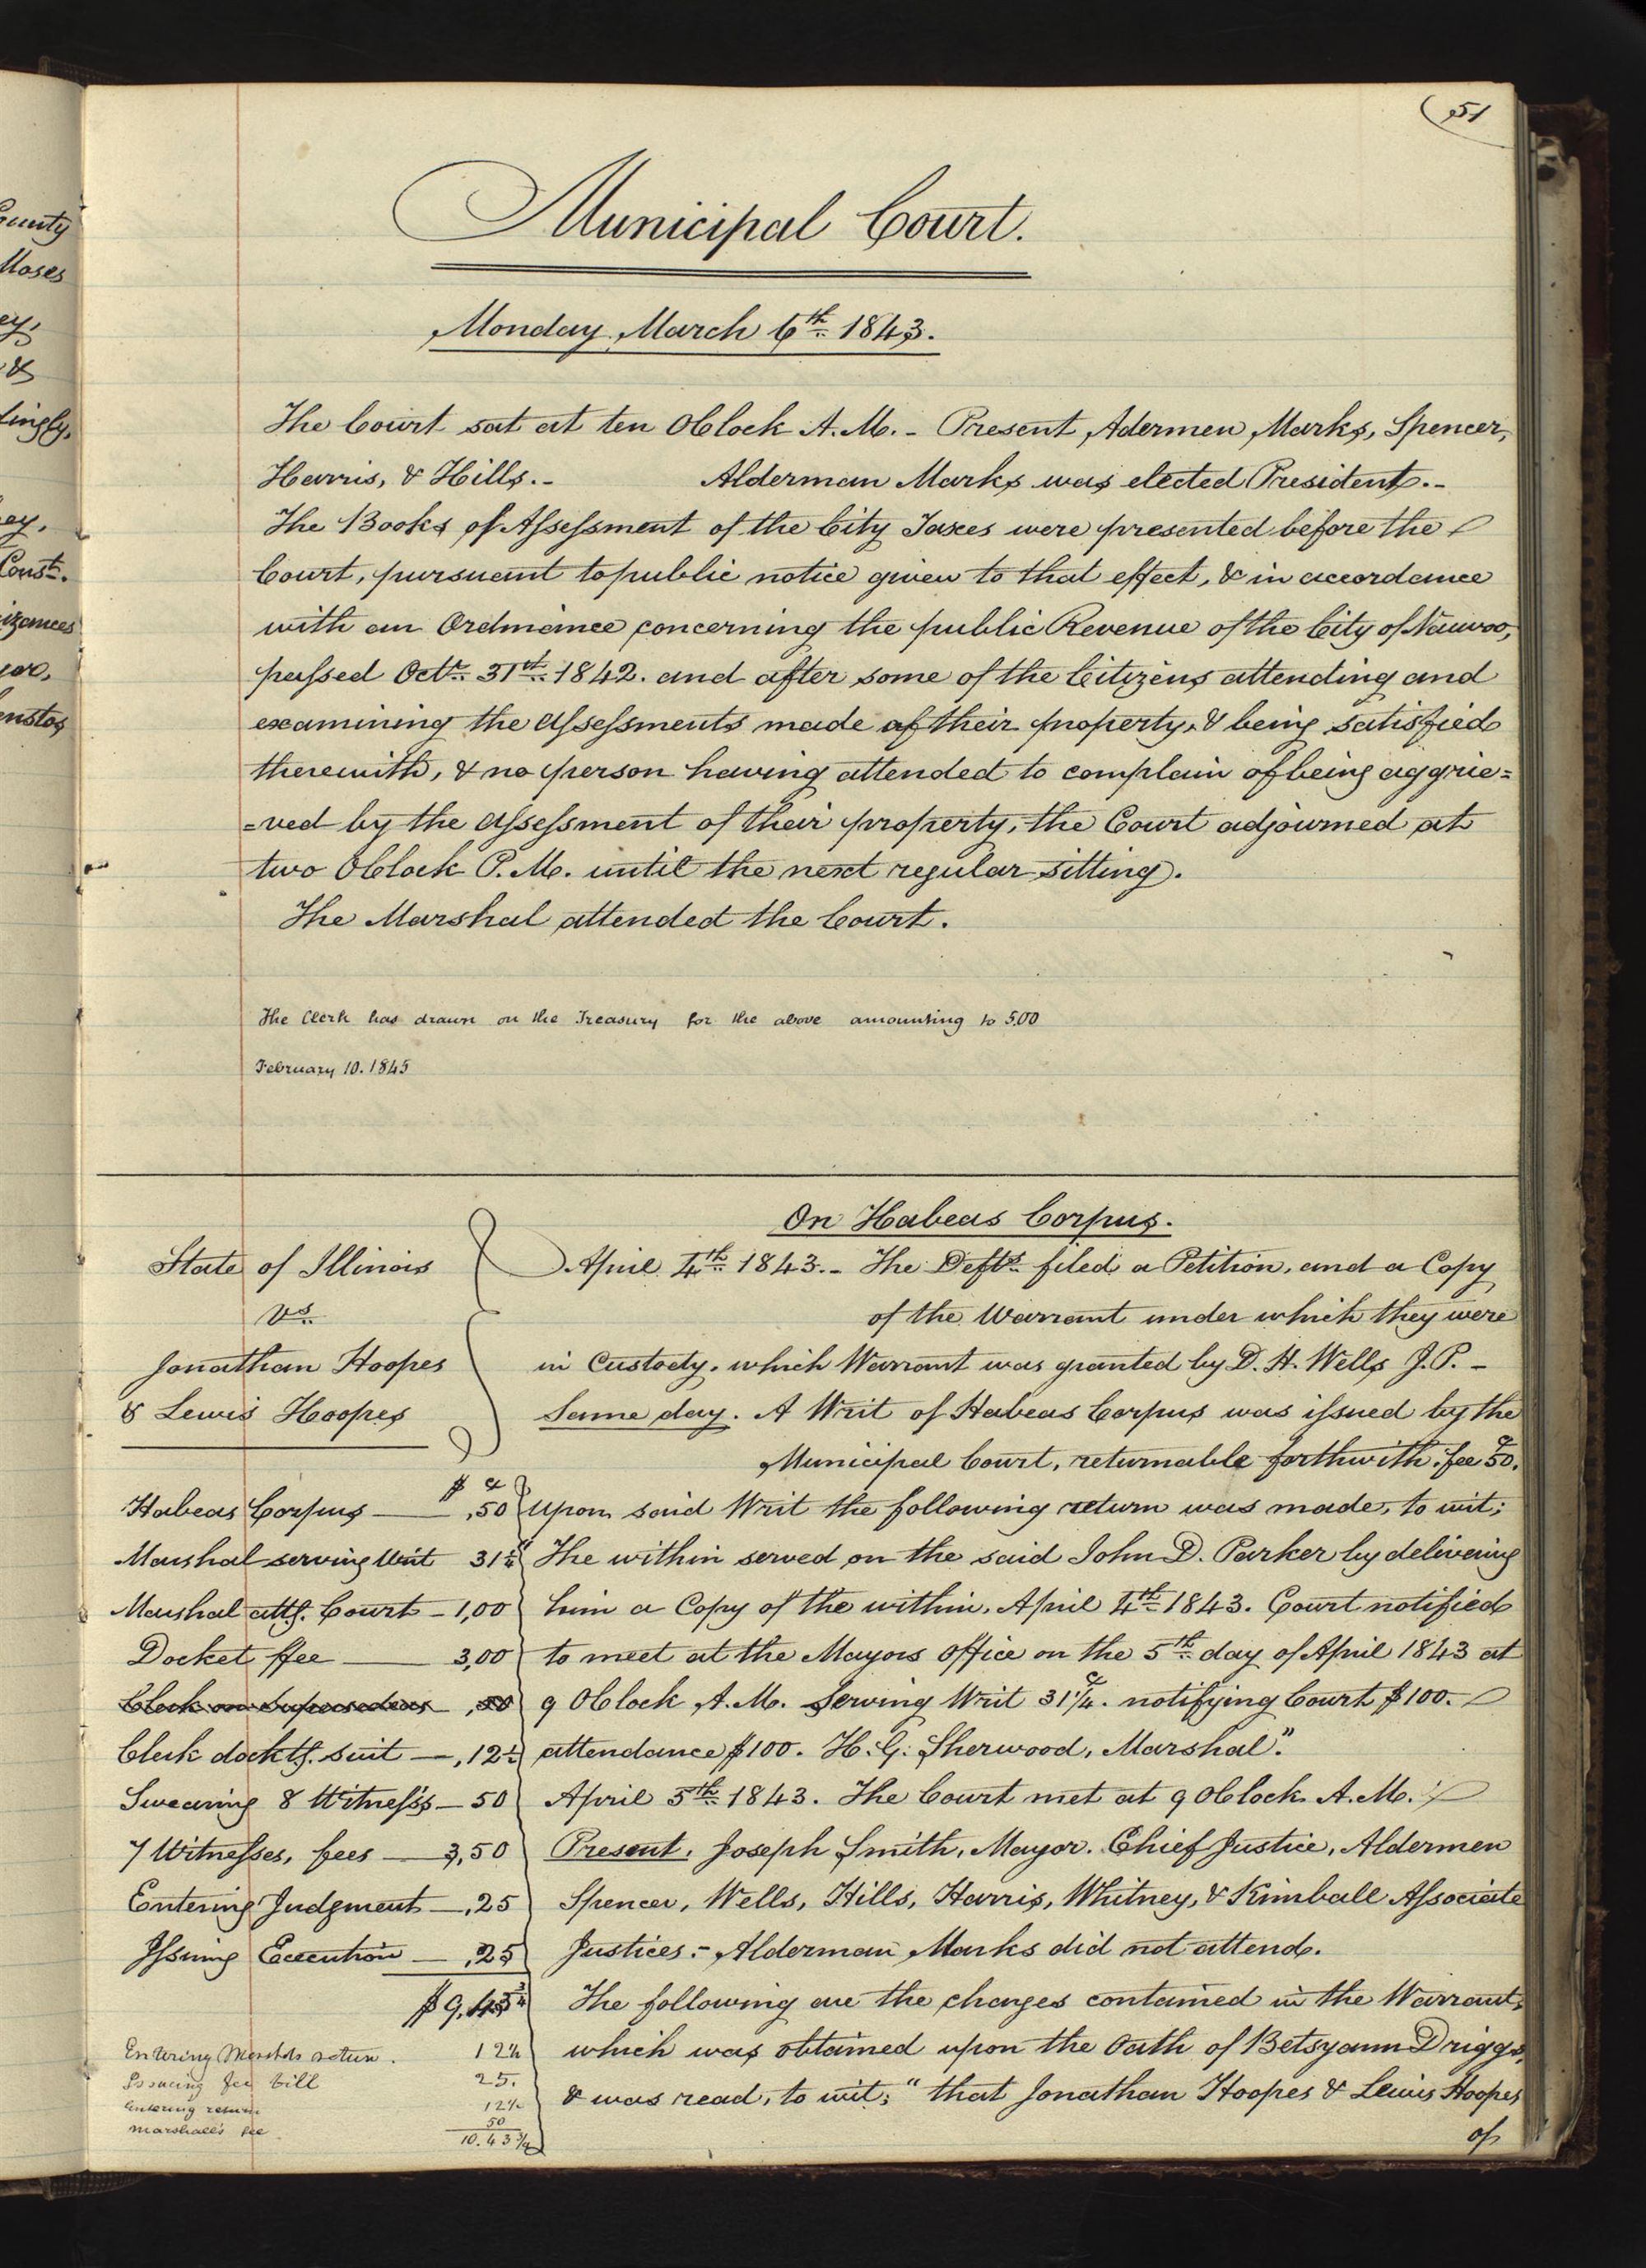 51
Municipal Court.
Monday March 6th. 1843.
The Court sat at ten OClock A.M. - Present, Adermen, Marks, Spencer,
Harris, & Hills. - Alderman Marks was elected President. -
The Books of Assessment of the City Taxes were presented before the
Court, pursuant to public notice given to that effect, & in accordance
with an Ordinance concerning the public Revenue of the City of Nauvoo,
passed Octr. 31st. 1842. and after some of the Citizens attending and
examining the Assessments made of their property, & being satisfied
therewith, & no person having attended to complain of being aggrie=
=ved by the Assessment of their property, the Court adjourned at
two OClock P.M. until the next regular sitting.
The Marshal attended the Court.
The Clerk has drawn on the Treasury for the above amounting to 5.00
February 10. 1845
On Habeas Corpus.
State of Illinois
vs.
Jonathan Hoopes
& Lewis Hoopes
April 4th. 1843. - The Defts. filed a Petition, and a Copy
of the Warrant under which they were
in Custody, which Warrant was granted by D. H. Wells J. P. -
Same day. A Writ of Habeas Corpus was issued by the
Municipal Court, returnable forthwith: fee 50.c
$ c
Habeas Corpus — ,50
Marshal serving Writ 31 1/4
Marshal attg. Court - 1,00
Docket ffee — 3,00
Clerk on Supersedeas — ,50
Clerk docktg. suit — ,12 1/2
Swearing 8 Witness's — 50
7 Witnesses, fees — 3,50
Entering Judgment — ,25
Issuing Execution — ,25
$9,43 3/4
Entering Marshals return. 12 1/2
Issuing fee bill 25.
Entering return 12 1/2
marshall's fee 50
10.43 3/4
Upon said Writ the following return was made, to wit;
The within served on the said John D. Parker by delivering
him a Copy of the within, April 4th. 1843. Court notified
to meet at the Mayors Office on the 5th. day of April 1843 at
9 OClock A.M. Serving Writ 31 1/4 c. notifying Court $100.
attendance $100. H. G. Sherwood, Marshal".
April 5th. 1843. The Court met at 9 OClock A.M.
Present, Joseph Smith, Mayor. Chief Justice, Aldermen
Spencer, Wells, Hills, Harris, Whitney, & Kimball Associate
Justices. - Alderman Marks did not attend.
The following are the charges contained in the Warrant,
which was obtained upon the Oath of Betsyann Driggs,
& was read, to wit; "that Jonathan Hoopes & Lewis Hoopes
of